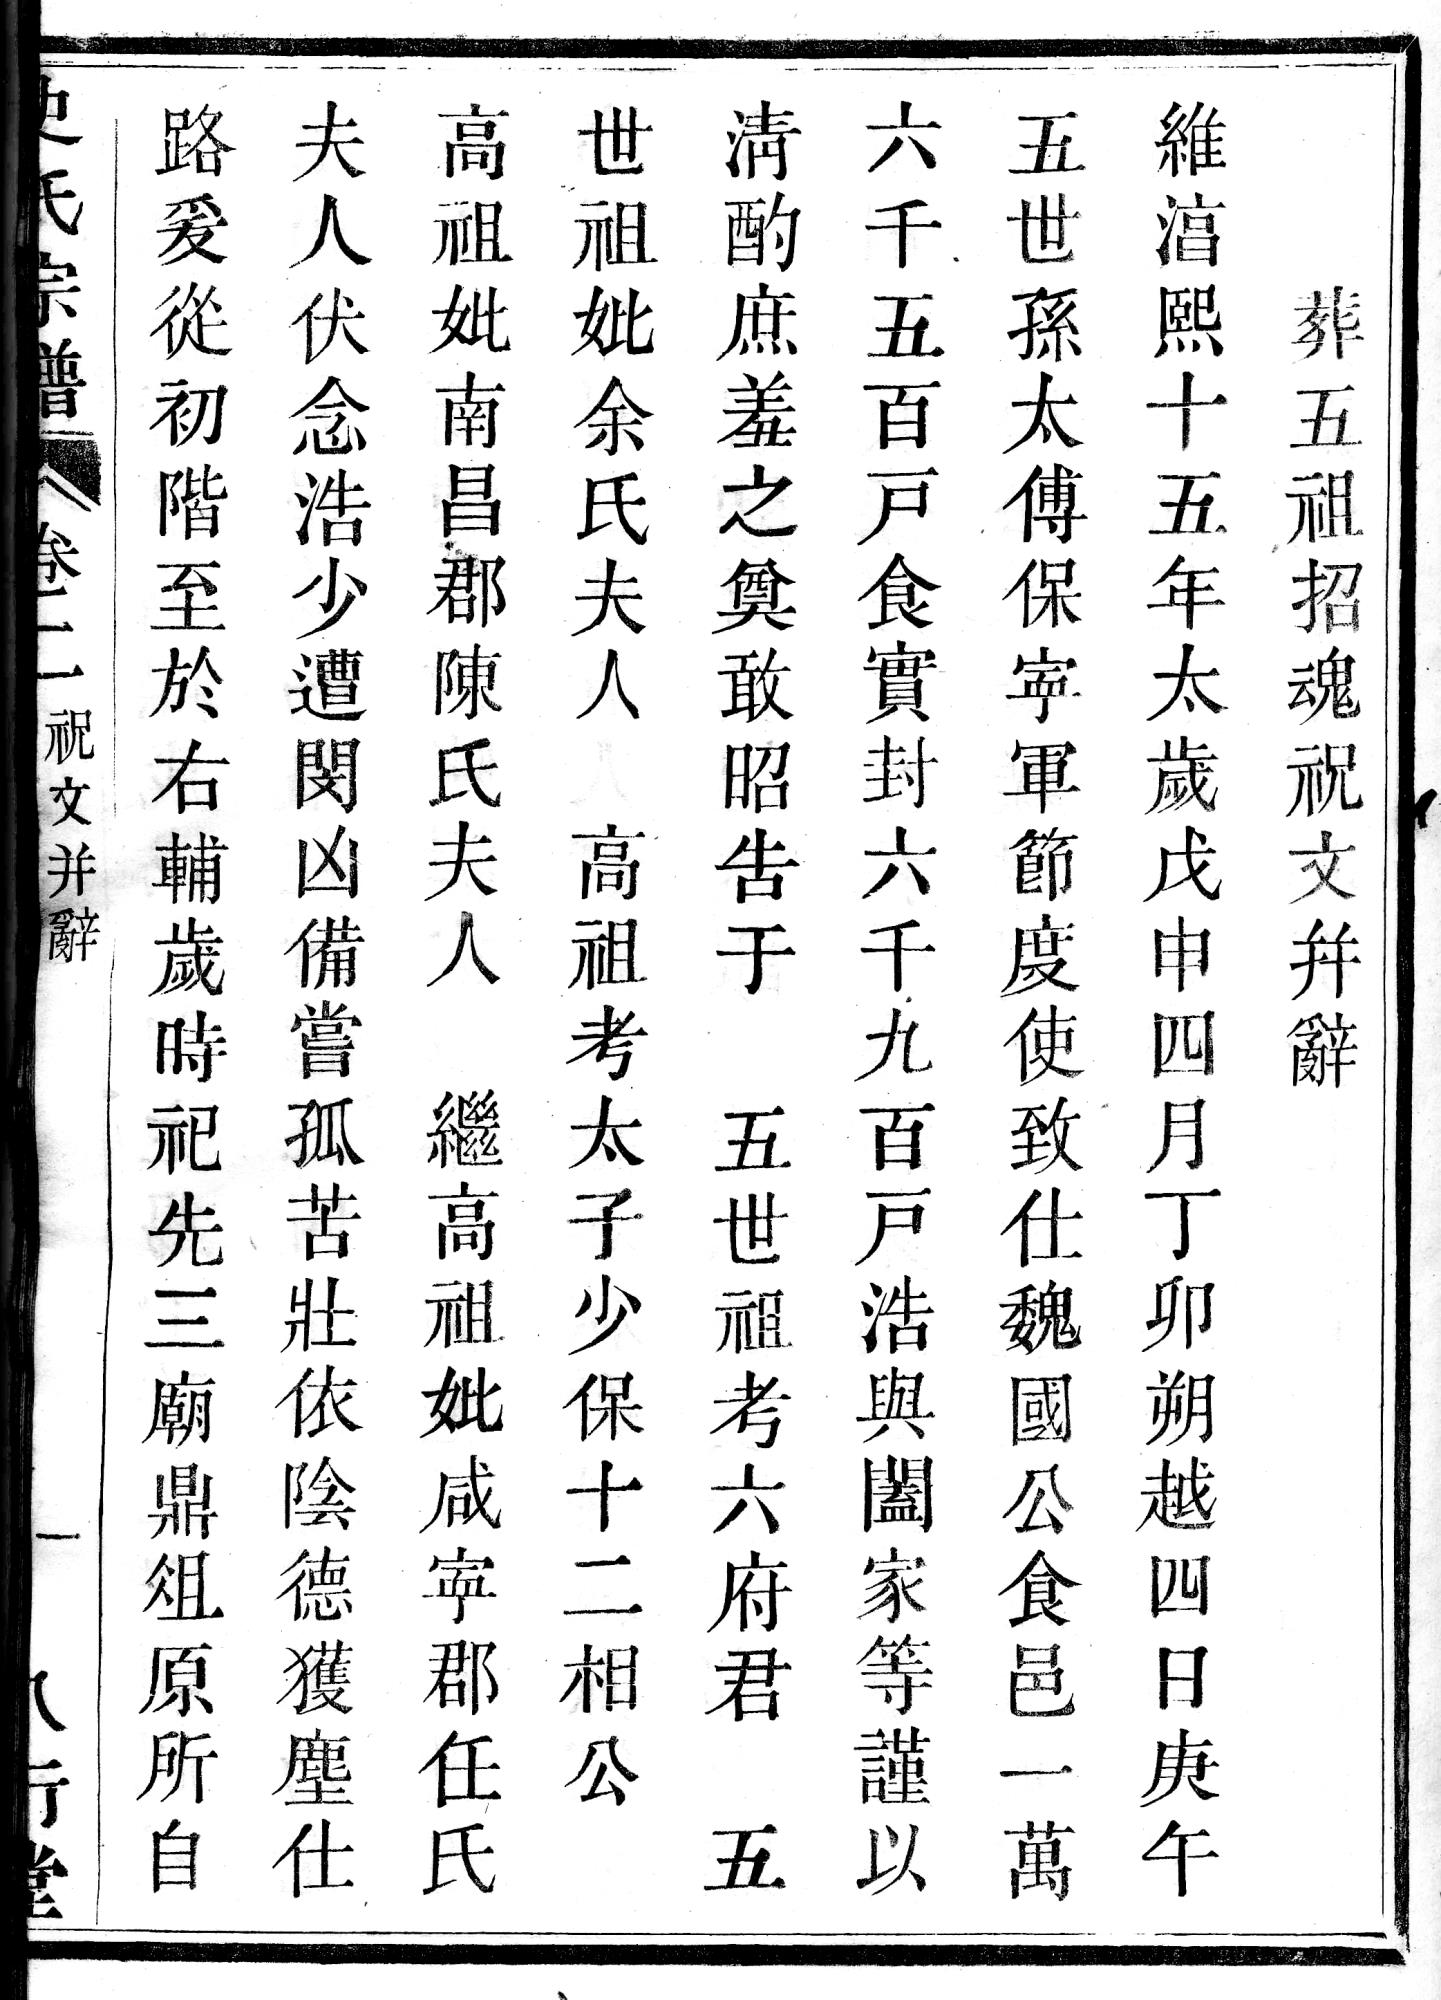 葬五祖招魂祝文并辭
維湻熙十五年太歲戊申四月丁卯朔越四日庚午
五世孫太傅保寧軍節度使致仕魏國公食邑一萬
六千五百戸食實封六千九百戸浩與闔家等謹以
淸酌庶羞之奠敢昭吿于　五世祖考六府君　五
世祖妣余氏夫人　高祖考太子少保十二相公
高祖妣南昌郡陳氏夫人　繼高祖妣咸寧郡任氏
夫人伏念浩少遭閔凶備嘗孤苦壯依陰德獲塵仕
路爰從初階至於右輔歲時祀先三廟鼎俎原所自
史氏宗譜　卷二　祝文并辭　一　八行堂